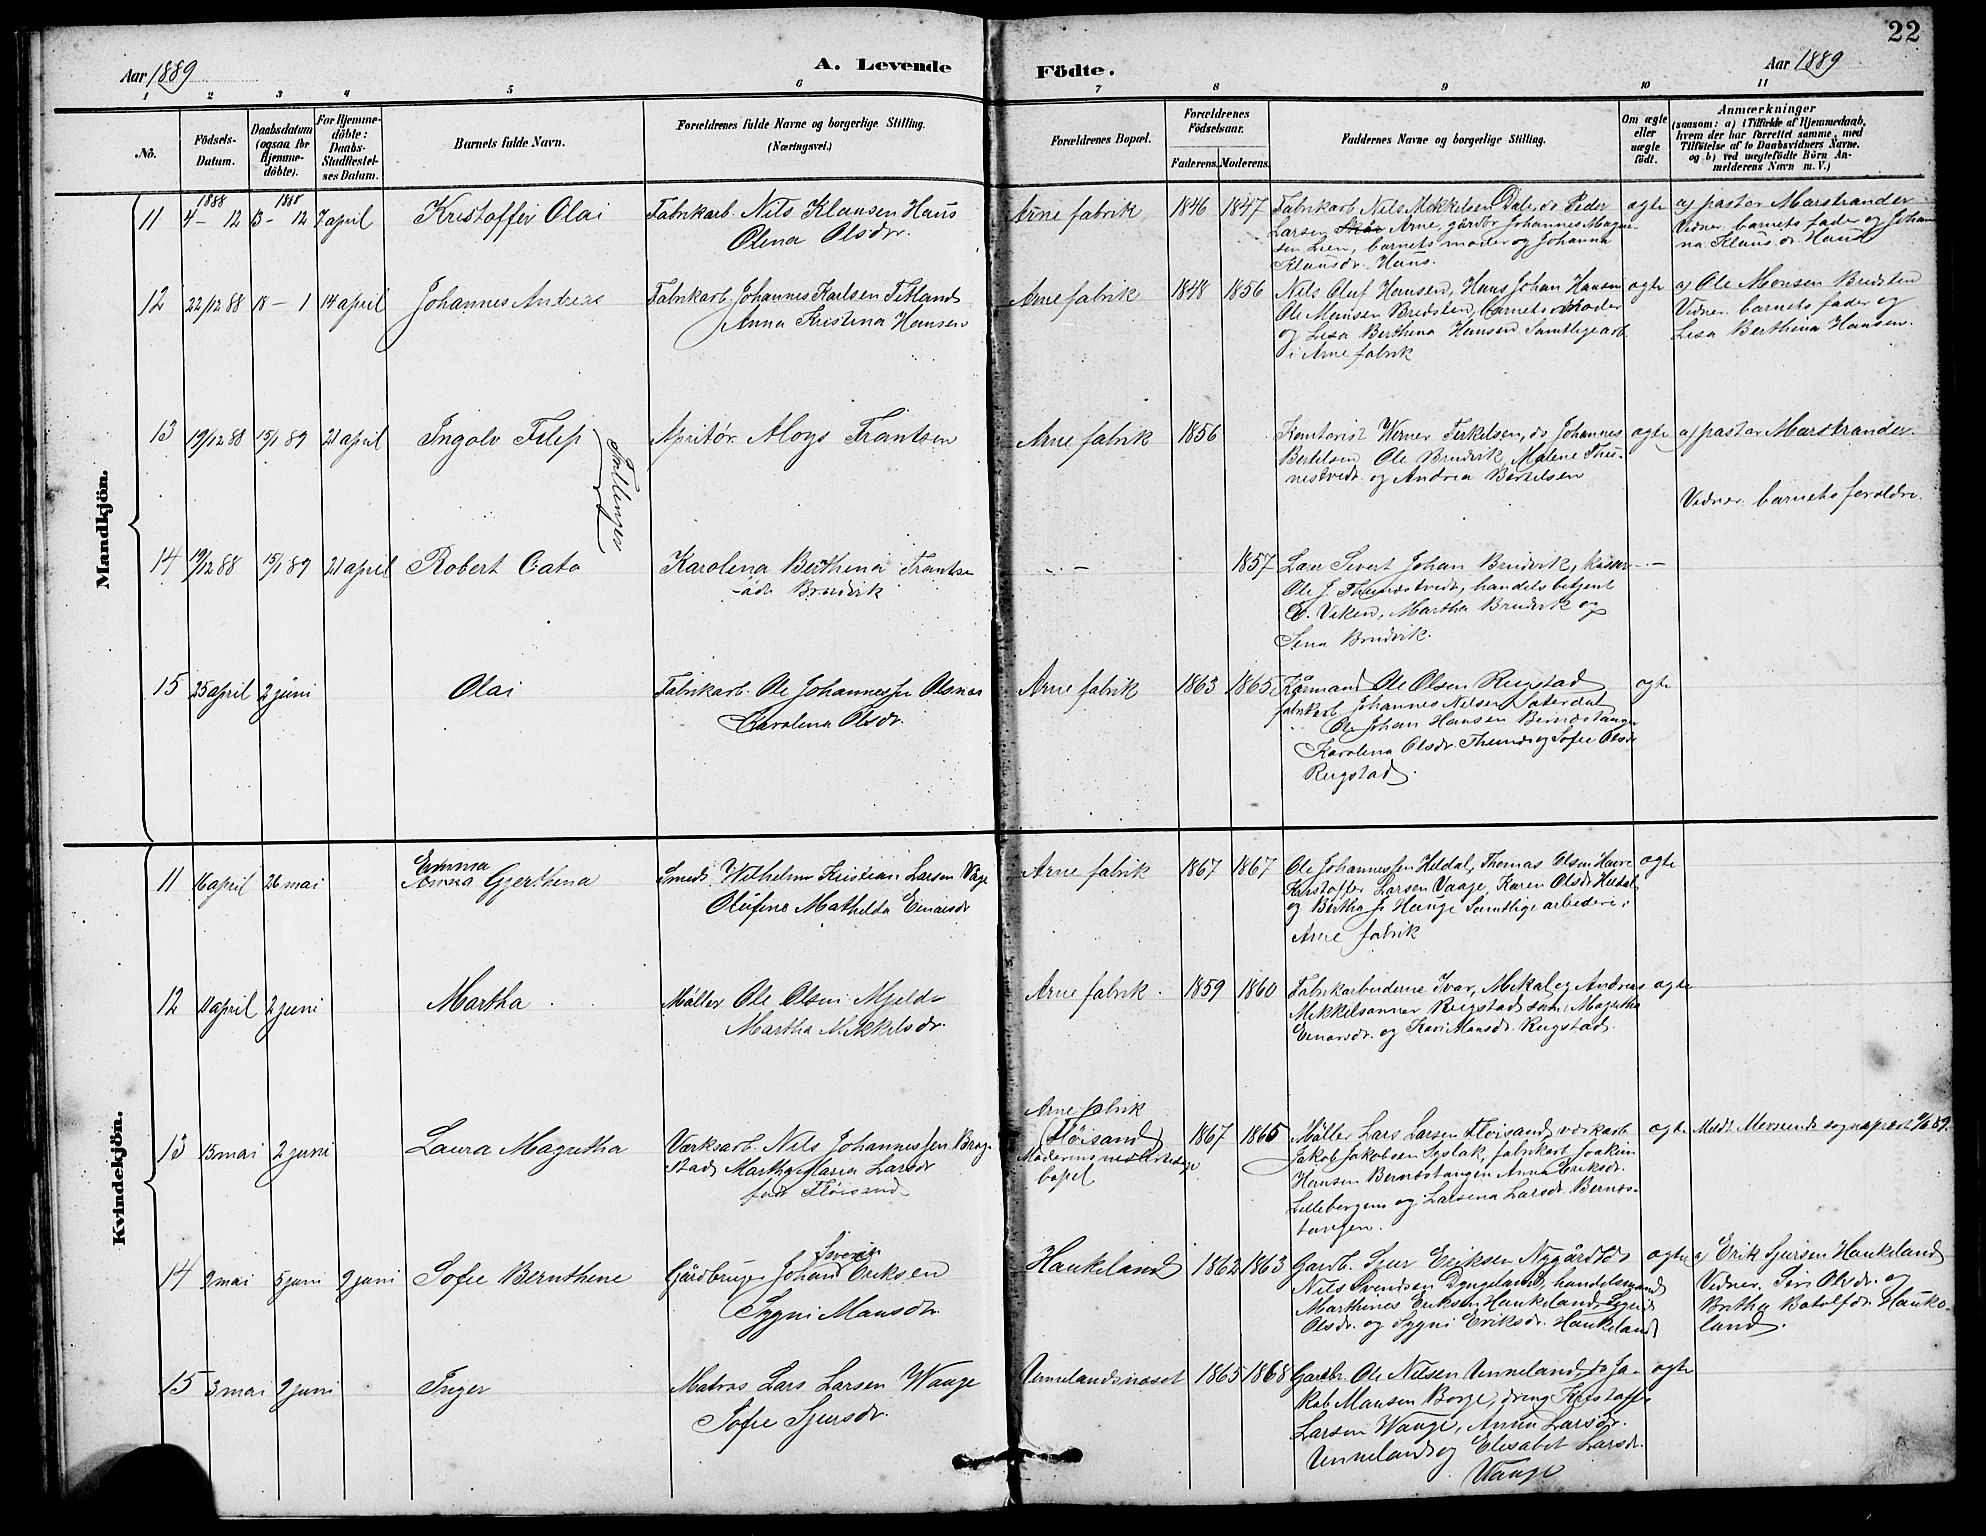 22
Aar 1889
A. Levende Födte.
Aar 1889
1 2 3 4 5 6 7 8 9 10 11
No.
Födsels-Datum.
Daabsdatum (ogsaa for Hjemme-döbte).
For Hjemme-döbte: Daabs-Stadfæstel-ses Datum.
Barnets fulde Navn.
Forældrenes fulde Navne og borgerlige Stilling.
(Næringsvei.)
Forældrenes Bopæl.
Forældrenes Födselsaar.
Faderens. Moderens.
Faddernes Navne og borgerlige Stilling.
Om ægte eller uægte födt.
Anmærkninger
(saasom: a) i Tilfælde af Hjemmedaab,
hvem der har forrettet samme, med
Tilföielse af to Daabsvidners Navne.
og b) ved uægtefödte Börn An-
melderens Navn m. V.)
Mandkjön.
11 1888 4 - 12 13 - 12 7 april Kristoffer Olai
Fabrikarb. Nils Klausen Haus
Olena Olsdr.
Arne fabrik 1846 1847
Fabrikarb. Nils Mikkelsen Dale, do Peder
Larsen Arne, gårdbr Johannes Magne-
sen Lien, barnets moder og Johanna
Klausdr. Haus.
ægte
a) pastor Marstrander
Vidner. barnets fader og Johan-
na Klausdr Haus
12 22/12 88 18 - 1 14 april Johannes Andreas
Fabrikarb. Johannes Karlsen Tetland
Anna Kristina Hansen
Arne fabrik 1848 1856
Nils Oluf Hansen, Hans Johan Hansen
Ole Monsen Bredsten, barnets moder
og Lisa Berthina Hansen Samtlige arb.
i Arne fabrik
ægte
a) Ole Monsen Bredsten
Vidner. barnets fader og
Lisa Berthina Hansen.
13 19/12 88 15/1 89 21 april Ingolv Filip
Tvillinger
Apritör. Aloys Frantsen
Arne fabrik 1856
Kontorist Werner Terkelsen, do Johannes
Bertelsen Ole Brudvik, Malene Thu-
nestvedt og Andrea Bertelsen
ægte
a) pastor Marstrander.
Vidner. barnets forældre.
14 19/12 88 15/1 89 21 april Robert Cato
Karolena Berthina Frantse
Brudvik
- - 1857
Lars Sivert Johan Brudvik,
Ole J. Thunestvedt, handelsbetjent
E. Viken, Martha Brudvik og
Sena Brudvik.
- -
15 25 april 2 juni Olai
Fabrikarb. Ole Johannesen Olsnes
Carolena Olsdr.
Arne fabrik 1863 1865
Formand Ole Olsen Rugstad
fabrikarb Johannes Nilsen Saterdal
Ole Johan Hansen Bernestangen
Karolena Olsdr. Thunes og Sofie Olsdr
Rugstad.
ægte
Kvindekjön.
11 16 april 26 mai Emma
Anna Gjerthina
Smed. Wilhelm Kristian Larsen Våge
Olufine Mathilda Einarsdr
Arne fabrik 1867 1867
Ole Johannessen Hildal, Thomas Olsen Haure
Kristoffer Larsen Vaage, Karen Olsdr Hildal
og Bertha J. Hauge Samtlige arbedere i
Arne fabrik
ægte
12 11 april 2 juni Martha
Møller Ole Olsen Mjelde
Martha Mikkelsdr.
Arne fabrik. 1859 1860
Fabrikarbeiderne Ivar, Mikal og Andreas
Mikkelsønner Rugstad samt Magretha
Einarsdr. og Kari Monsdr. Rugstad.
ægte
13 15 mai 2 juni Laura Magretha
Værksarb. Nils Johannessen Brag-
stad, Martha Maria Larsdr
født Fløisand.
Arne fabrik
(Fløisand)
Moderens midlertidige
bopel
1867 1865
Møller Lars Larsen Fløisand, værksarb.
Jakob Jakobsen Syslak, fabrikarb. Joakim
Hansen Bernestangen Anna Eriksdr.
Lillebergen og Larsena Larsdr. Bernes-
tangen.
ægte
Meldt sognaprest
14 9 mai 5 juni 9 juni Sofie Bernthene
Gårdbruger Johan Severin Eriksen
Sygni Monsdr.
Haukeland 1862 1863
Gardb. Sjur Eriksen Nygård, do
Nils Svendsen Dyngeland, handelsmand
Marthines Eriksen Haukeland, Sigrid
Olsdr. og Sygni Eriksdr. Haukeland
ægte
a) Erik Sjursen Haukeland
Vidner. Siri Olsdr. og
Britha Botolfdr. Hauke-
land.
15 3 mai 9 juni Inger
Matros Lars Larsen Waage
Sofie Sjursdr.
Unnelandsneset 1865 1868
Gardbr. Ole Nilsen Unneland, do Ja-
kob Monsen Borge, dreng Kristoffer
Larsen Waage, Anna Larsdr.
Unneland og Elisabet Larsdr.
Waage
ægte